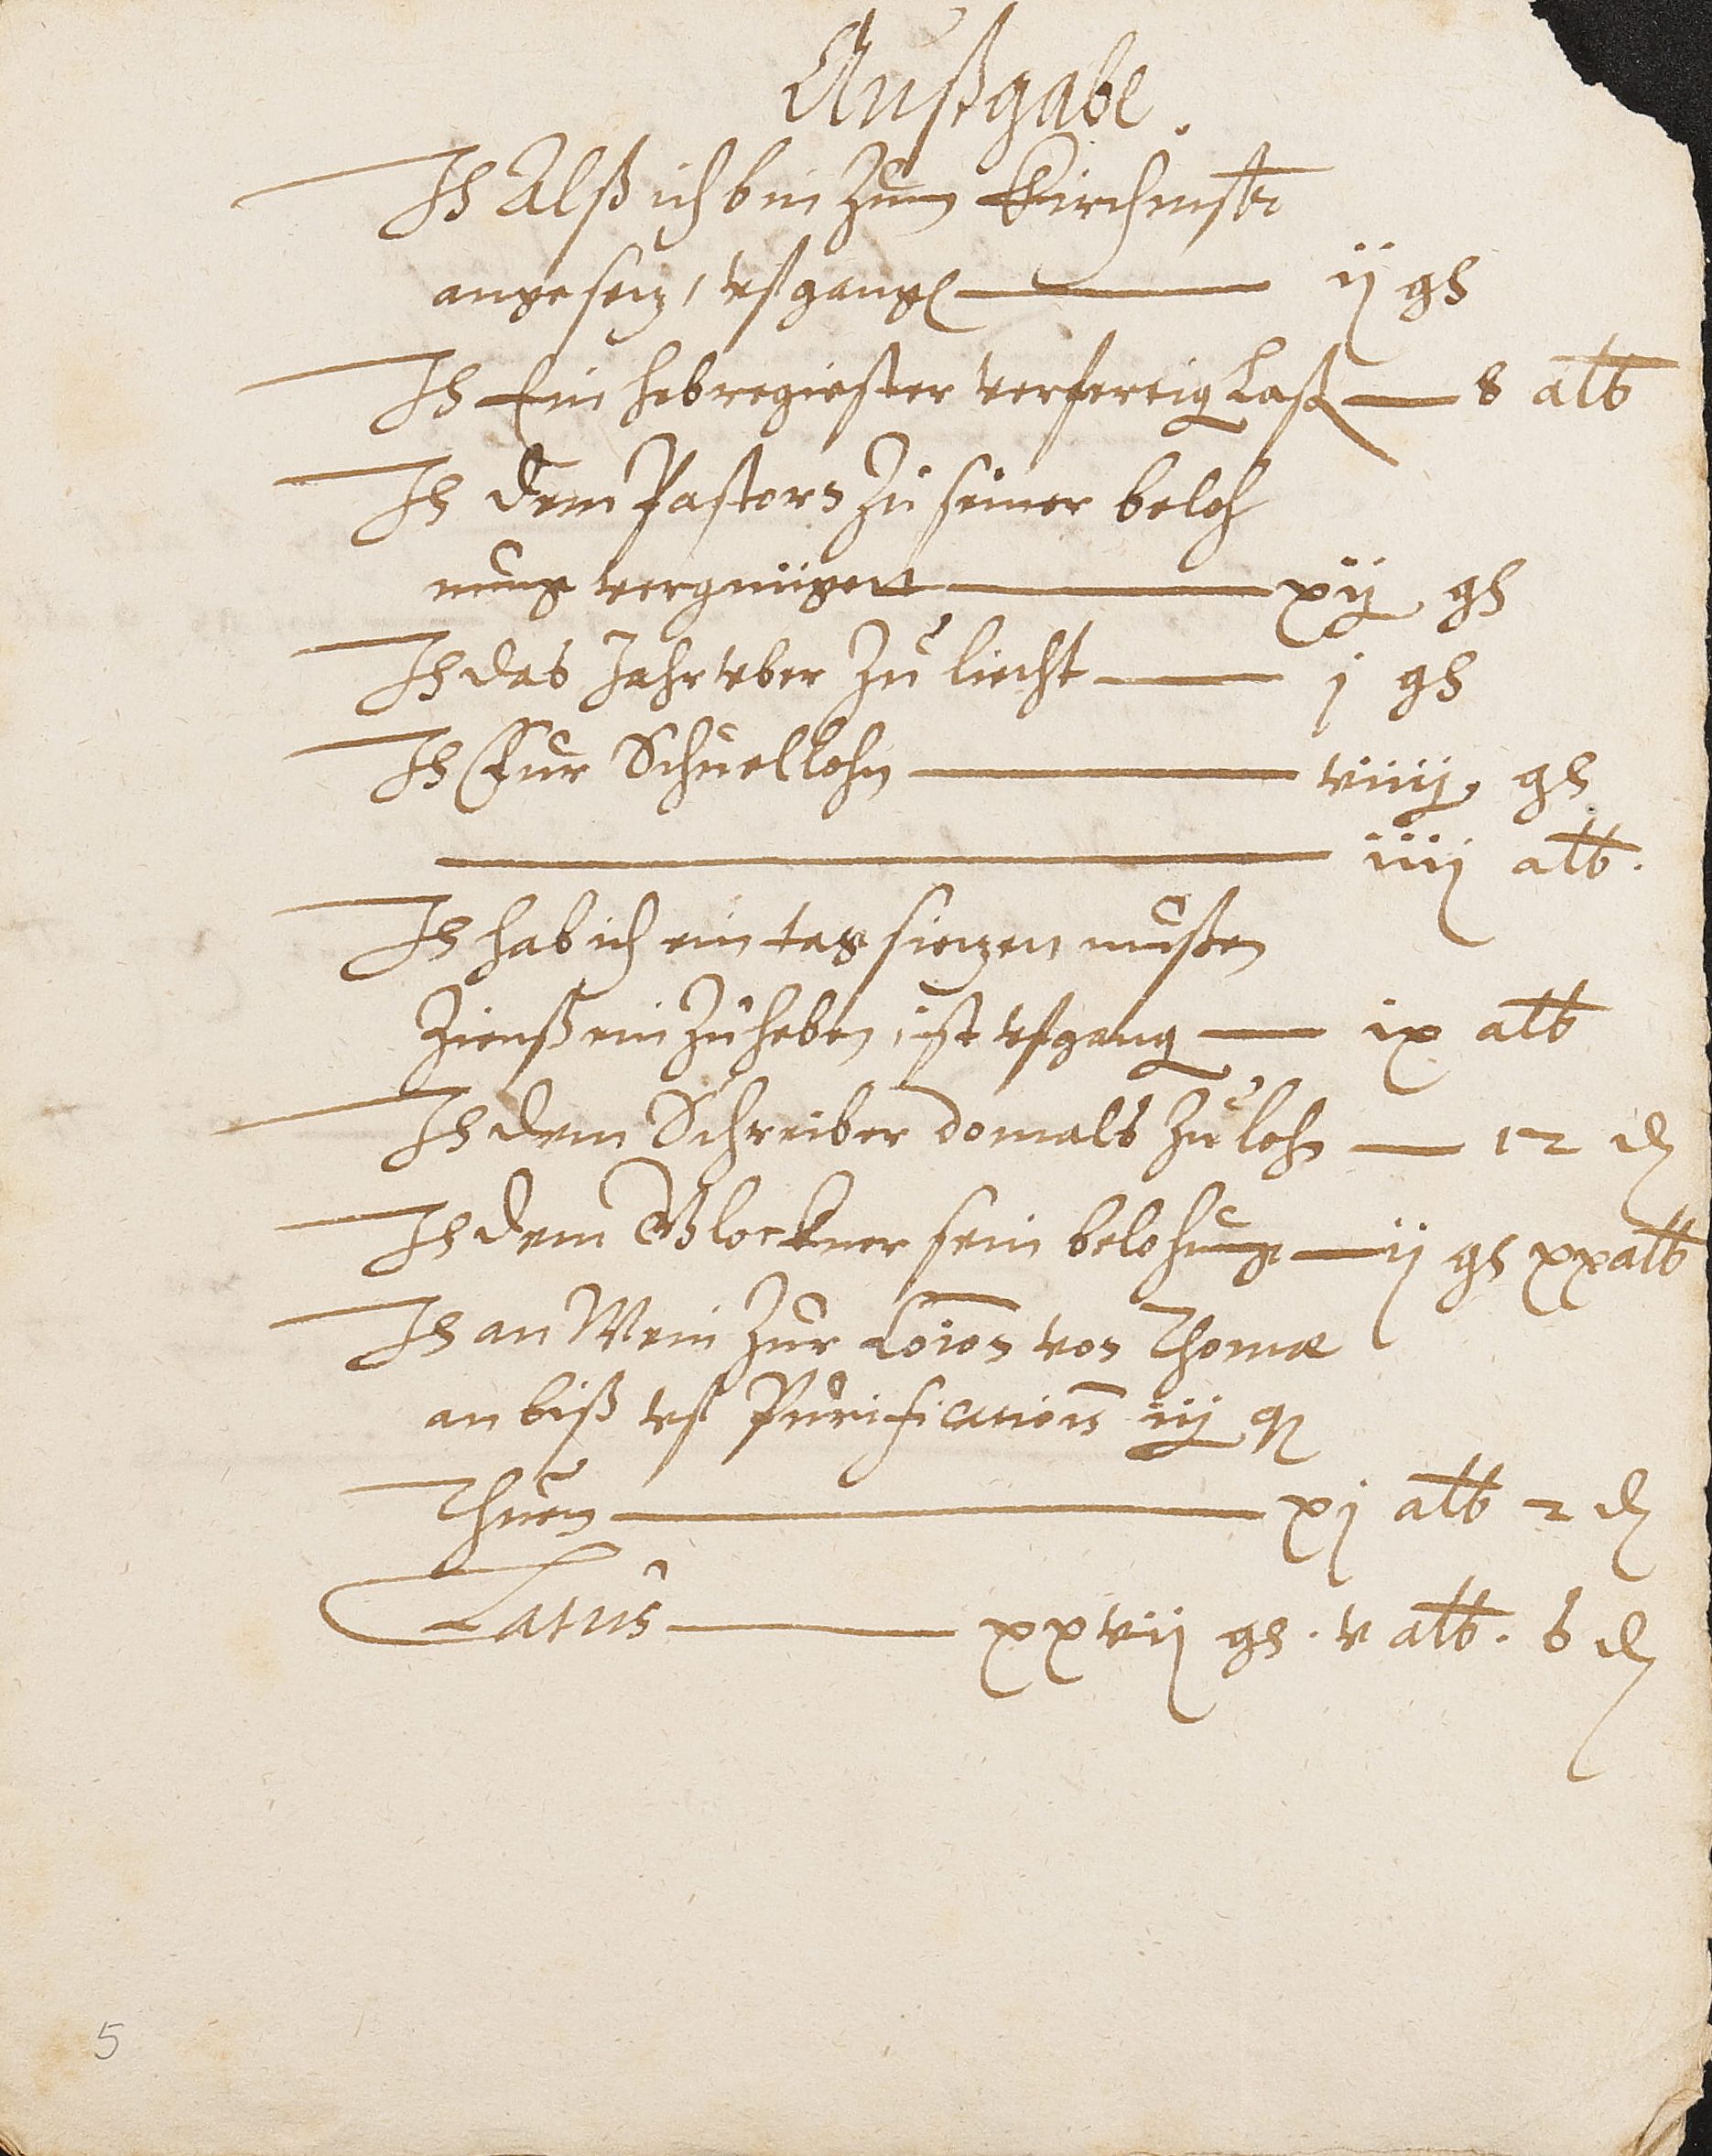 Außgabe.
Jt Alß ich bin zum Kirchenmstr
angesezt, vfgangen ij gl
Jt Ein hebregiester verfertig Laß 8 alb
Jt dem Pastorn zu seiner beloh
nung vergnügen xij gl
Jt das Jahr vber zu liecht j gl
Jt Fur Schuellohn viiij gl
iiij alb.
Jt hab ich ein tag sitzen mußen
Zienß ein zuheben, ist vfgang ix alb
Jt dem Schreiber domals zu lohn 12 d
Jt dem Glockner sein belohung ij gl xx alb
Jt an Wein zur Coion von Thomæ
an biß vf Purificationis iij q
Thuen xj alb 2 d
Latus xxvij gl. v alb. 6 d
5